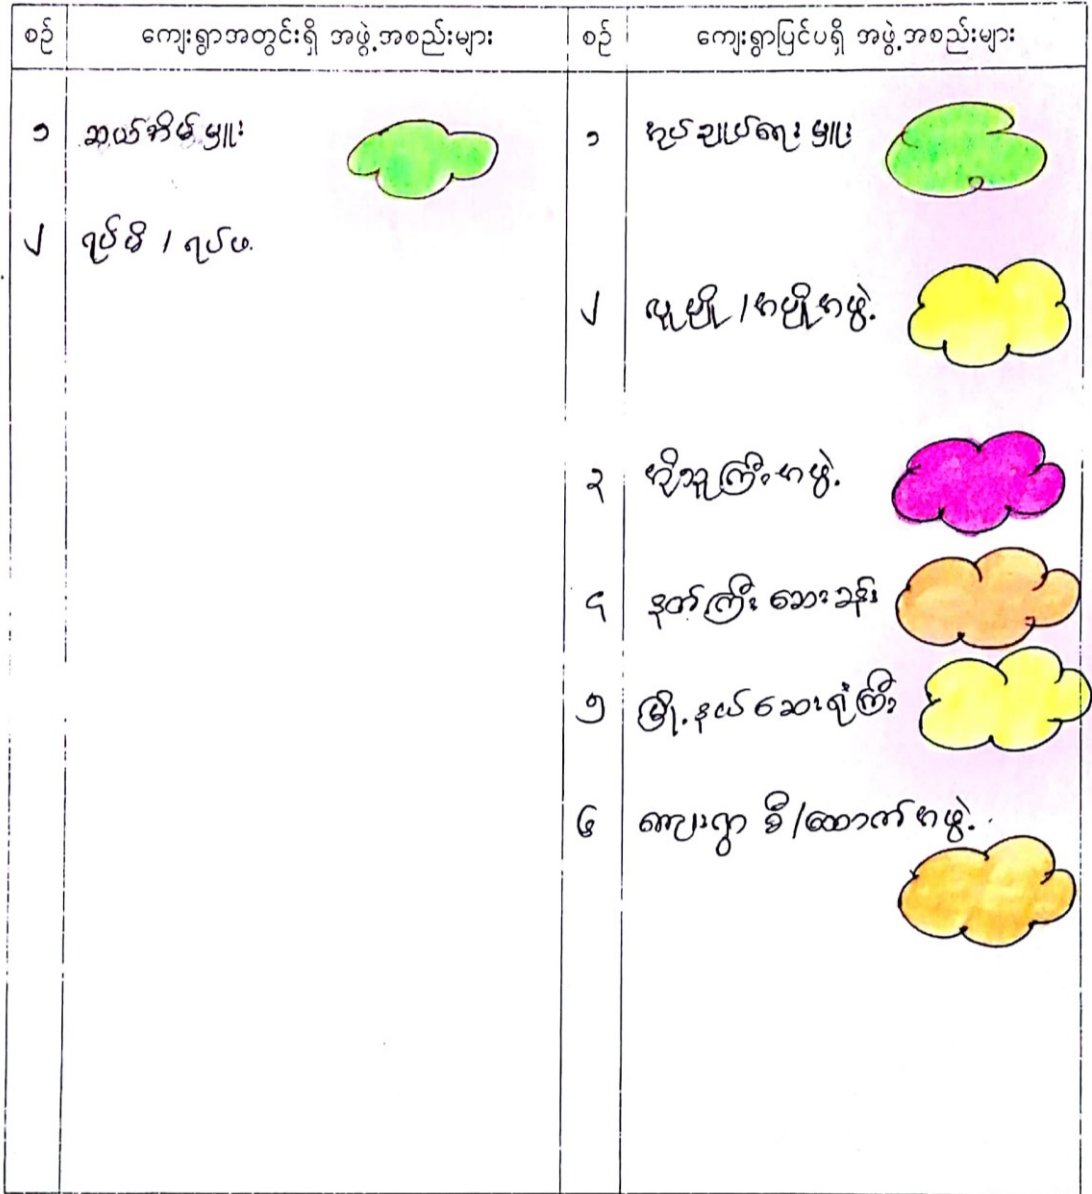 စဉ် ကျေးရွာအတွင်းရှိ အဖွဲ့အစည်းများ စဉ် ကျေးရွာပြင်ပရှိ အဖွဲ့အစည်းများ
၁ ဆယ်အိမ်မှူး ၁ အုပ်ချုပ်ရေးမှူး
၂ ရပ်မိ / ရပ်ဖ
၂ လူပျို / အပျိုအဖွဲ့
၃ ကြီး အဖွဲ့
၄ နတ်ကြီး ဆေးခန်း
၅ မြို့နယ် ဆေးရုံကြီး
၆ ကျေးရွာ စီ/ထောက်အဖွဲ့